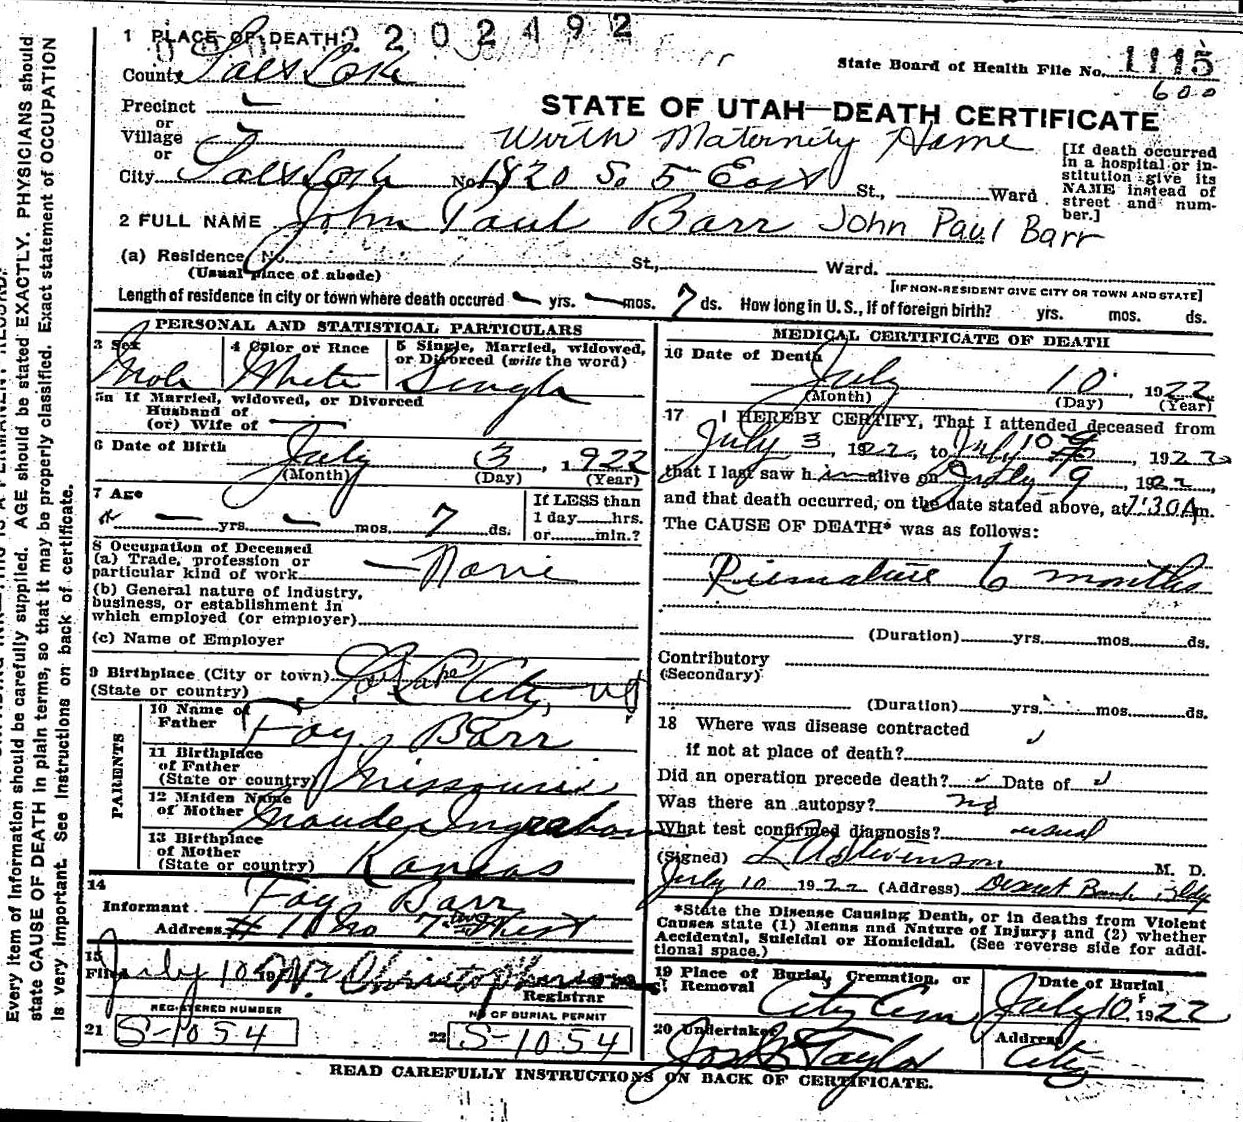 2202492
1 PLACE OF DEATH
State Board of Health File No. 1115
County Salt Lake
600
Precinct
STATE OF UTAH—DEATH CERTIFICATE
or
Village
Wirth Maternity Home
or
City Salt Lake No. 1820 So 5 East St., Ward
[If death occurred in a hospital or institution give its NAME instead of street and number.]
2 FULL NAME John Paul Barr John Paul Barr
(a) Residence No. St., Ward.
(Usual place of abode)
[IF NON-RESIDENT GIVE CITY OR TOWN AND STATE]
Length of residence in city or town where death occured — yrs. — mos. 7 ds. How long in U. S., if of foreign birth? yrs. mos. ds.
PERSONAL AND STATISTICAL PARTICULARS
3 Sex
Male
4 Color or Race
White
5 Single, Married, widowed,
or Divorced (write the word)
Single
5a If Married, widowed, or Divorced
Husband of
(or) Wife of
6 Date of Birth July 3, 1922
(Month) (Day) (Year)
7 Age
— yrs. — mos. 7 ds.
If LESS than
1 day hrs.
or min.?
8 Occupation of Deceased
(a) Trade, profession or
particular kind of work None
(b) General nature of industry,
business, or establishment in
which employed (or employer)
(c) Name of Employer
9 Birthplace (City or town) Salt Lake City, Ut
(State or country)
PARENTS
10 Name of
Father Fay Barr
11 Birthplace
of Father
(State or country) Missouri
12 Maiden Name
of Mother Maude Ingraham
13 Birthplace
of Mother
(State or country) Kansas
14
Informant Fay Barr
Address # 11 So 7 West
15
Filed July 10 Registrar
REGISTERED NUMBER
21 S-1054
NO OF BURIAL PERMIT
22 S-1054
MEDICAL CERTIFICATE OF DEATH
16 Date of Death
July 10, 1922
(Month) (Day) (Year)
17 I HEREBY CERTIFY, That I attended deceased from
July 3, 1922, to July 10, 1922
that I last saw him alive on July 9, 1922,
and that death occurred, on the date stated above, at 7:30 A m.
The CAUSE OF DEATH* was as follows:
Premature 6 months
(Duration) yrs. mos. ds.
Contributory
(Secondary)
(Duration) yrs. mos. ds.
18 Where was disease contracted
if not at place of death?
Did an operation precede death? Date of
Was there an autopsy? no
What test confirmed diagnosis? usual
(Signed) L A Stevenson M. D.
July 10 1922 (Address) Deseret Bank Bldg
*State the Disease Causing Death, or in deaths from Violent
Causes state (1) Means and Nature of Injury; and (2) whether
Accidental, Suicidal or Homicidal. (See reverse side for addi-
tional space.)
19 Place of Burial, Cremation, or
Removal City Cem
Date of Burial
July 10, 1922
20 Undertaker
Jos Wm Taylor
Address
City
READ CAREFULLY INSTRUCTIONS ON BACK OF CERTIFICATE.
Every item of information should be carefully supplied. AGE should be stated EXACTLY. PHYSICIANS should
state CAUSE OF DEATH in plain terms, so that it may be properly classified. Exact statement of OCCUPATION
is very important. See instructions on back of certificate.